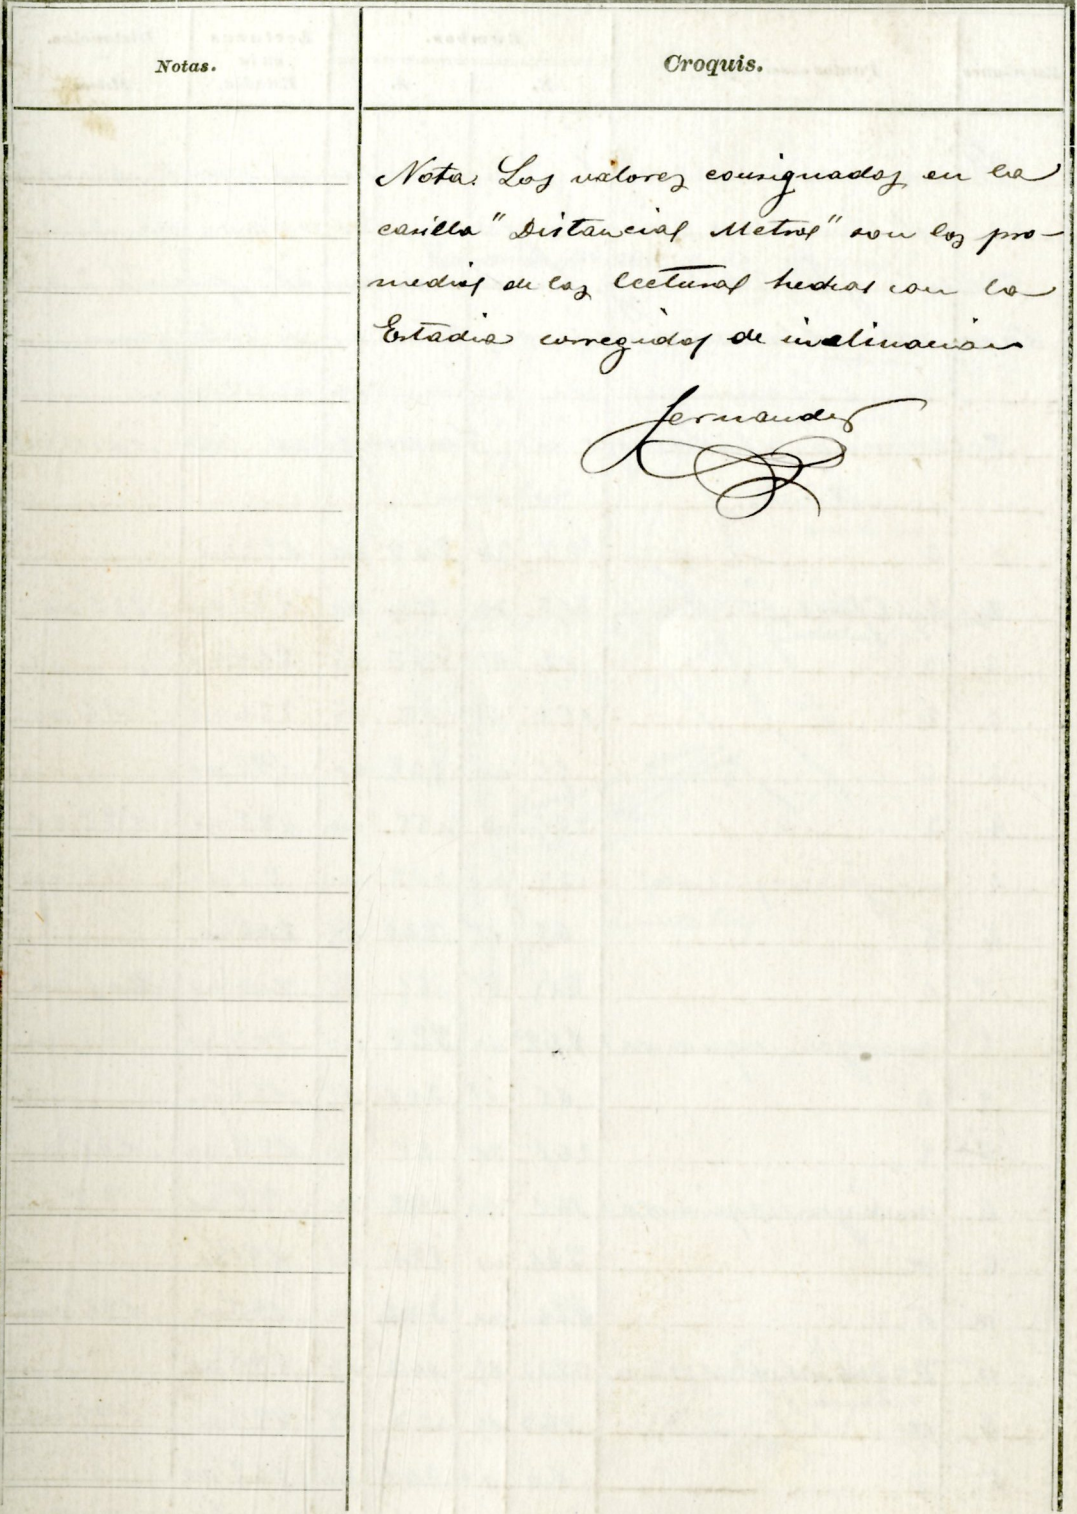 Notas.
Croquis.
Nota: Los valores consignados en la
casilla "Distancias Metros" son los pro-
medios de las lecturas hechas con la
Estadia corregidos de inclinación
Hernandez